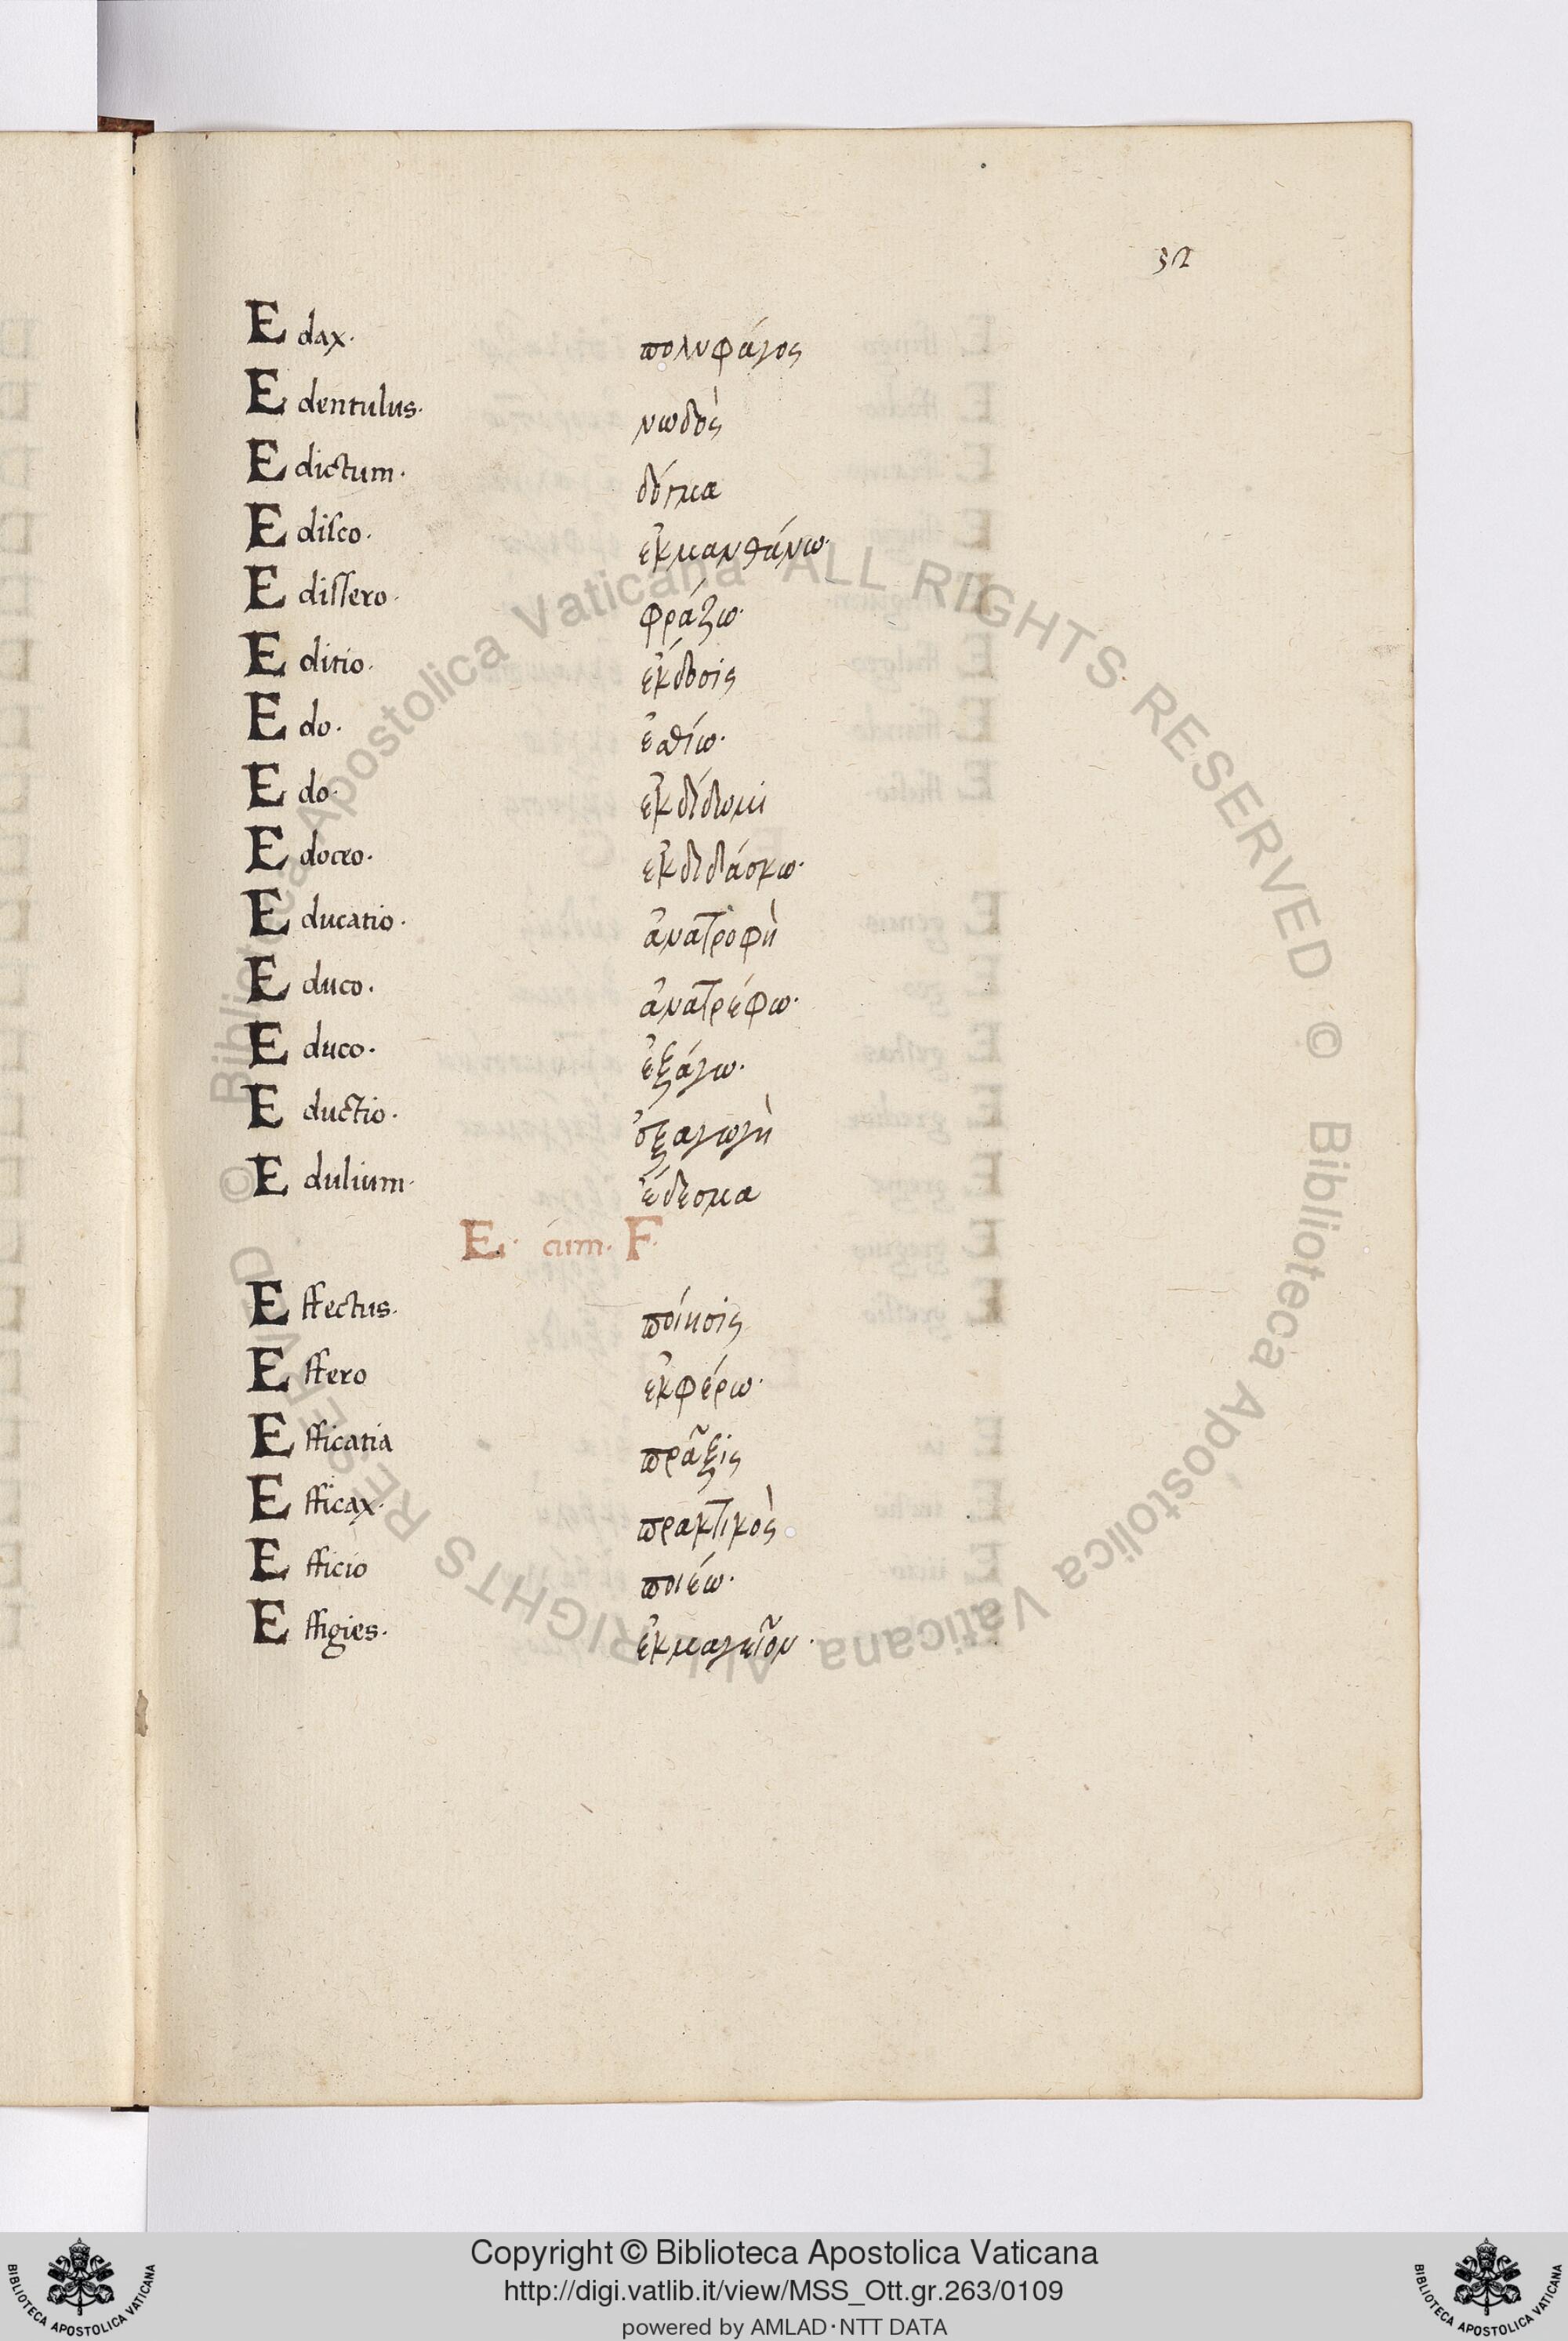 32
Edax. πολυφάγος
Edentulus. νωδὸς
Edictum. δόγμα
Edisco. ἐκμανθάνω.
Edissero. φράζω.
Editio. ἐκδοσις
Edo. ἐσθίω.
Edo. ἐκδίδωμι
Edoceo. ἐκδιδάσκω.
Educatio. ἀνατροφὴ
Educo. ἀνατρέφω.
Educo. ἐξάγω.
Eductio. ἐξαγωγὴ
Edulium. ἔδεσμα
E. cum. F.
Effectus. ποίησις
Effero ἐκφέρω.
Efficatia πρᾶξις
Efficax. πρακτικὸς
Efficio ποιέω.
Effigies. ἐκμαγεῖον.
© Biblioteca Apostolica Vaticana ALL RIGHTS RESERVED © Biblioteca Apostolica Vaticana ALL RIGHTS RESERVED
Copyright © Biblioteca Apostolica Vaticana
http://digi.vatlib.it/view/MSS_Ott.gr.263/0109
powered by AMLAD·NTT DATA
BIBLIOTECA APOSTOLICA VATICANA
BIBLIOTECA APOSTOLICA VATICANA